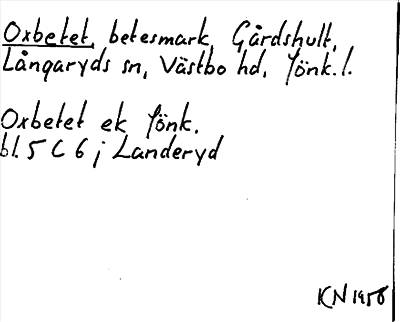 Oxbetet, betesmark, Gårdshult,
Långaryds sn, Västbo hd, Jönk. l.
Oxbetet ek Jönk.
bl. 5 C 6 j Landeryd
KN 1958